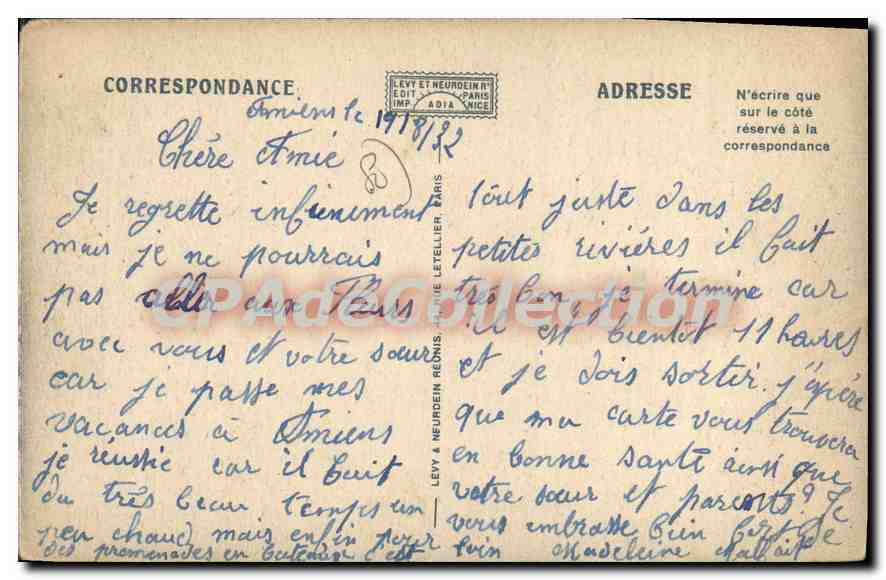 CORRESPONDANCE
LEVY ET NEURDEIN Rs
EDIT PARIS
IMP ADIA NICE
ADRESSE
N'écrire que
sur le côté
réservé à la
correspondance
Amiens le 19/8/32
Chère Amie
Je regrette infiniment
mais je ne pourrais
pas aller aux Fleurs
avec vous et votre sœur
car je passe mes
vacances à Amiens
je réussie car il fait
du très beau temps un
peu chaud mais enfin pour
des promenades en bateau c'est
LÉVY & NEURDEIN RÉUNIS, 44, RUE LETELLIER, PARIS
tout juste dans les
petites rivières il fait
très bon je termine car
il est bientôt 11 heures
et je dois sortir. j'éspère
que ma carte vous trouvera
en bonne santé ainsi que
votre sœur et parents? Je
vous embrasse bien fort de
loin Madeleine
CPAdeCollection